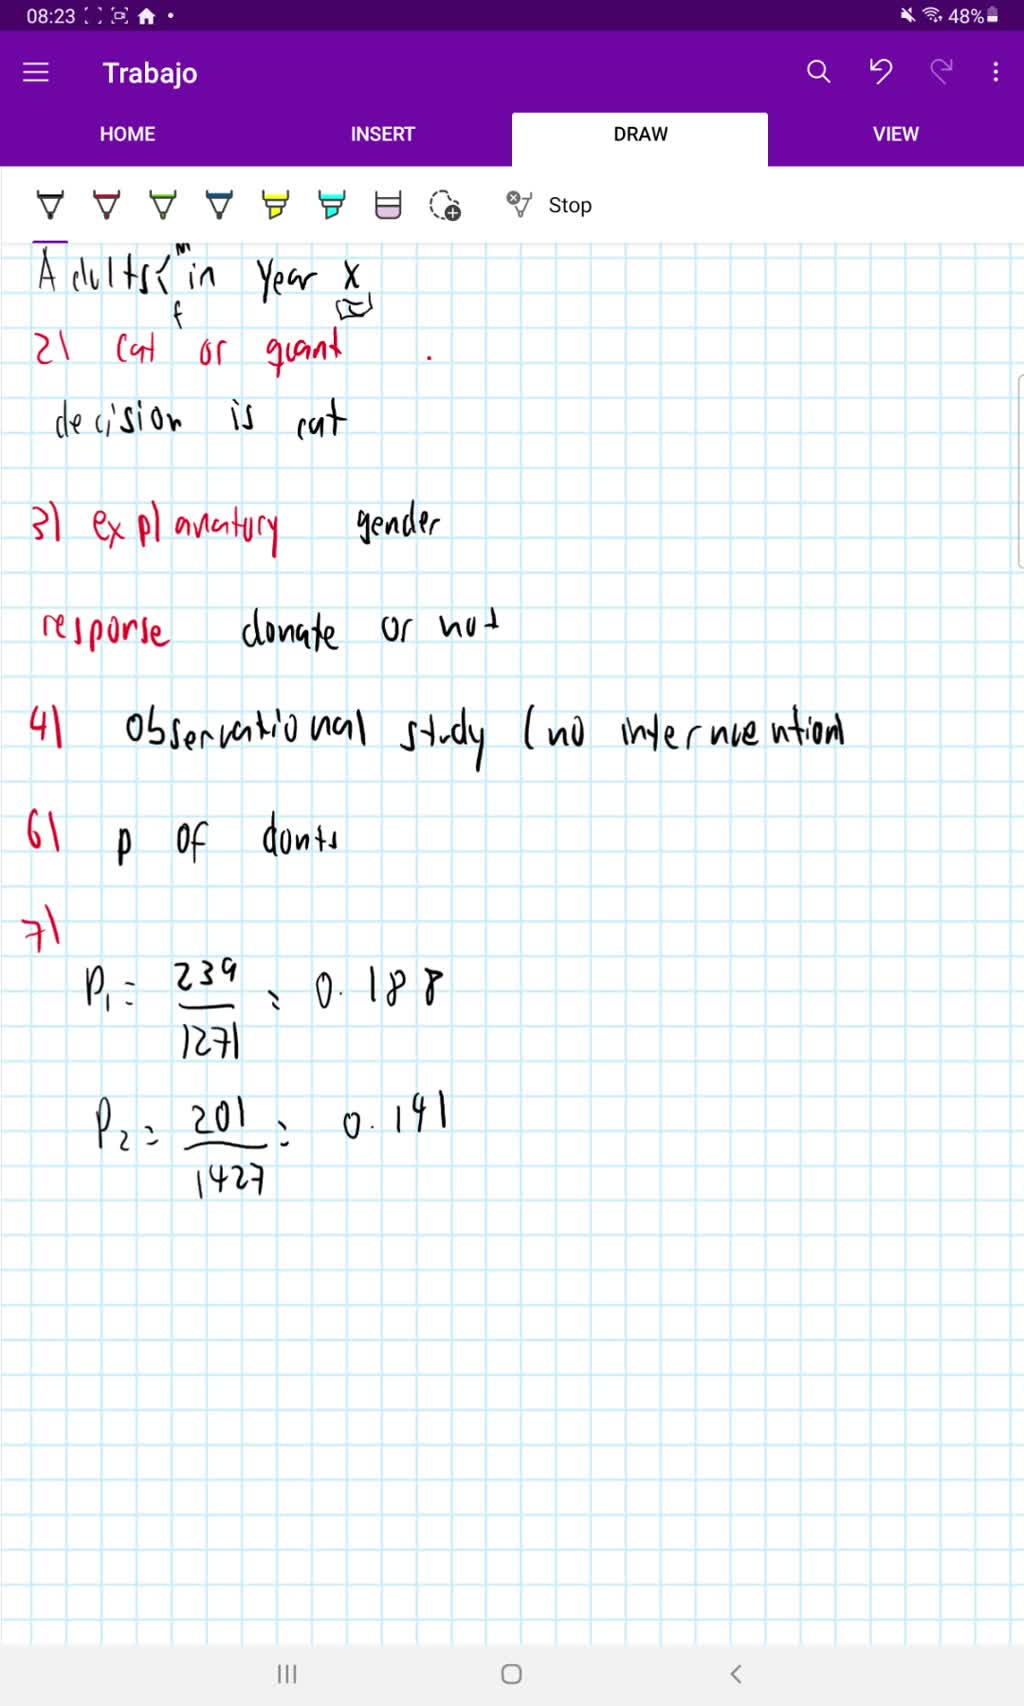 08:23 48%
Trabajo
HOME INSERT DRAW VIEW
Stop
m
Adults{ in year x
f
2) cat or quant .
decision is cat
3) explanatory gender
response donate or not
4) observational study (no intervention)
6) p of donts
7)
P1 = 239/1271 = 0.188
P2 = 201/1427 = 0.141